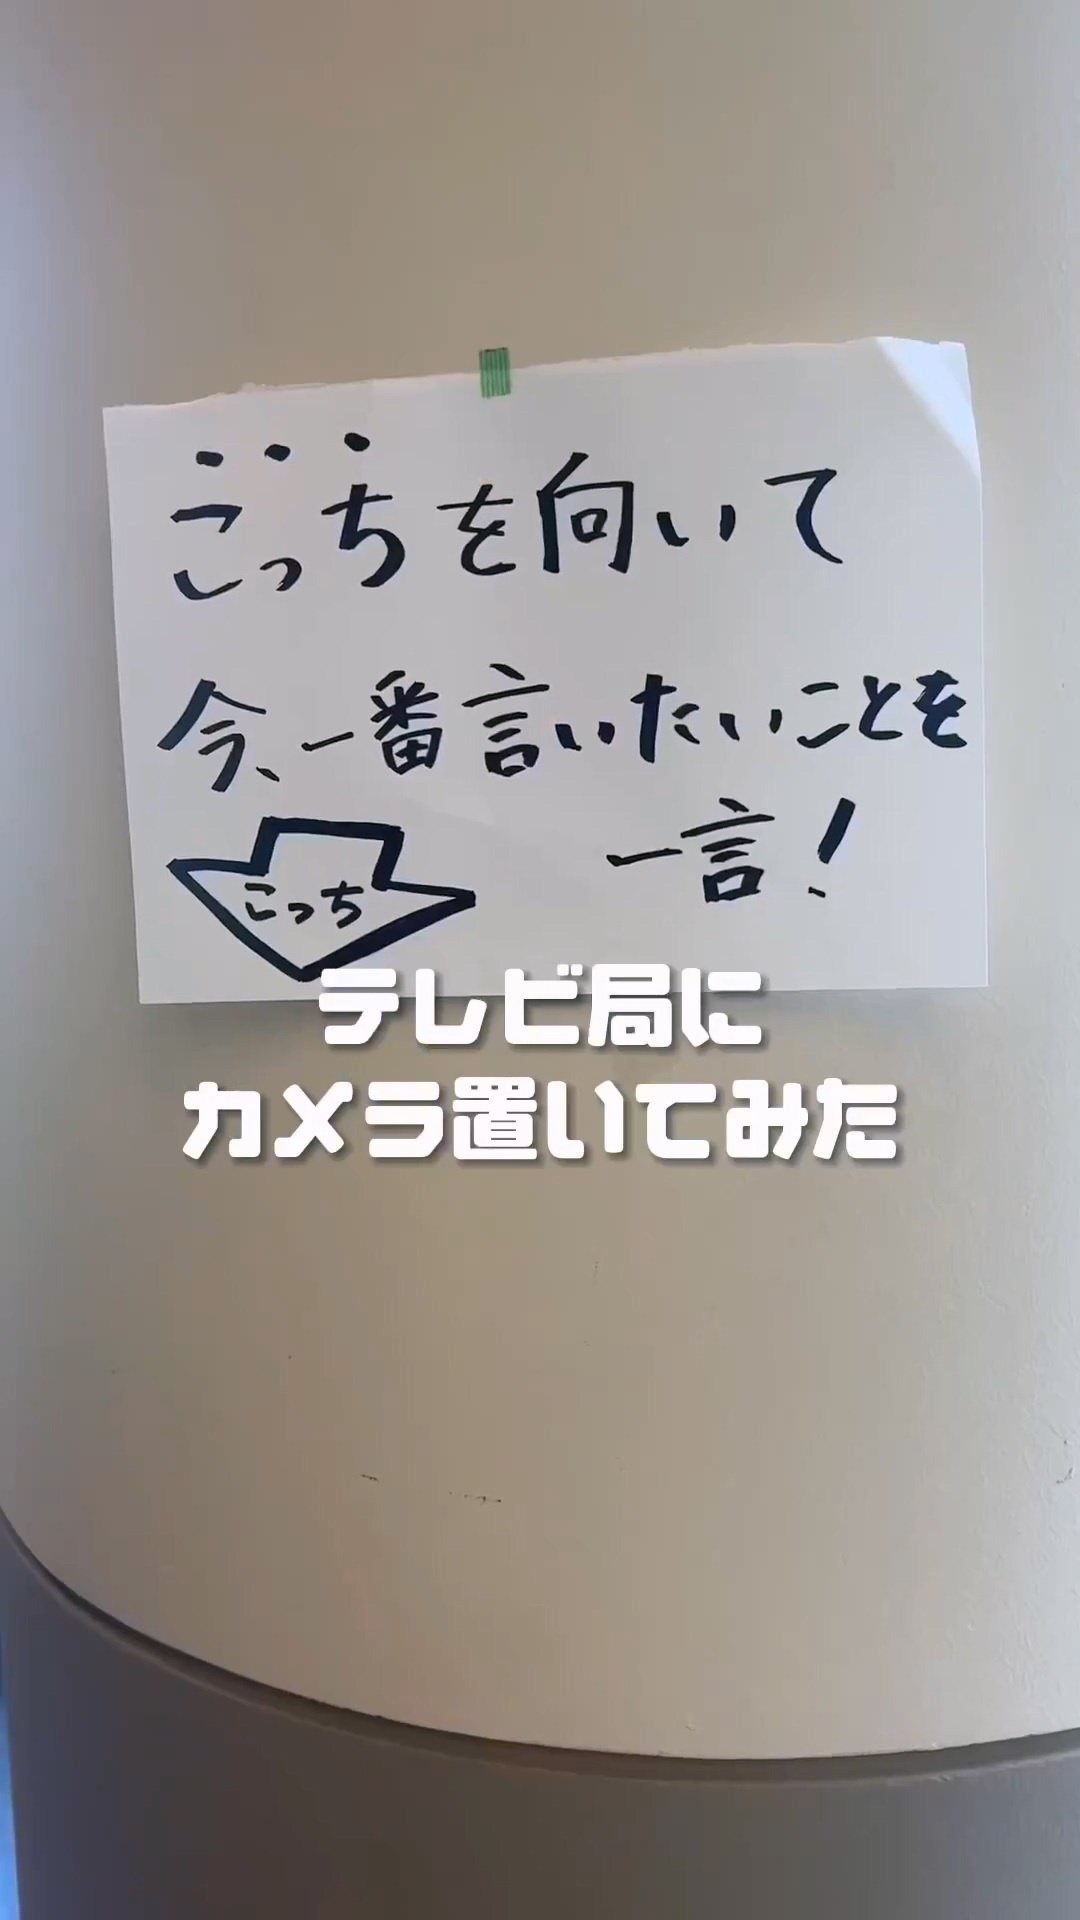 こっちを向いて
今、一番言いたいことを
一言!
こっち
テレビ局に
カメラ置いてみた